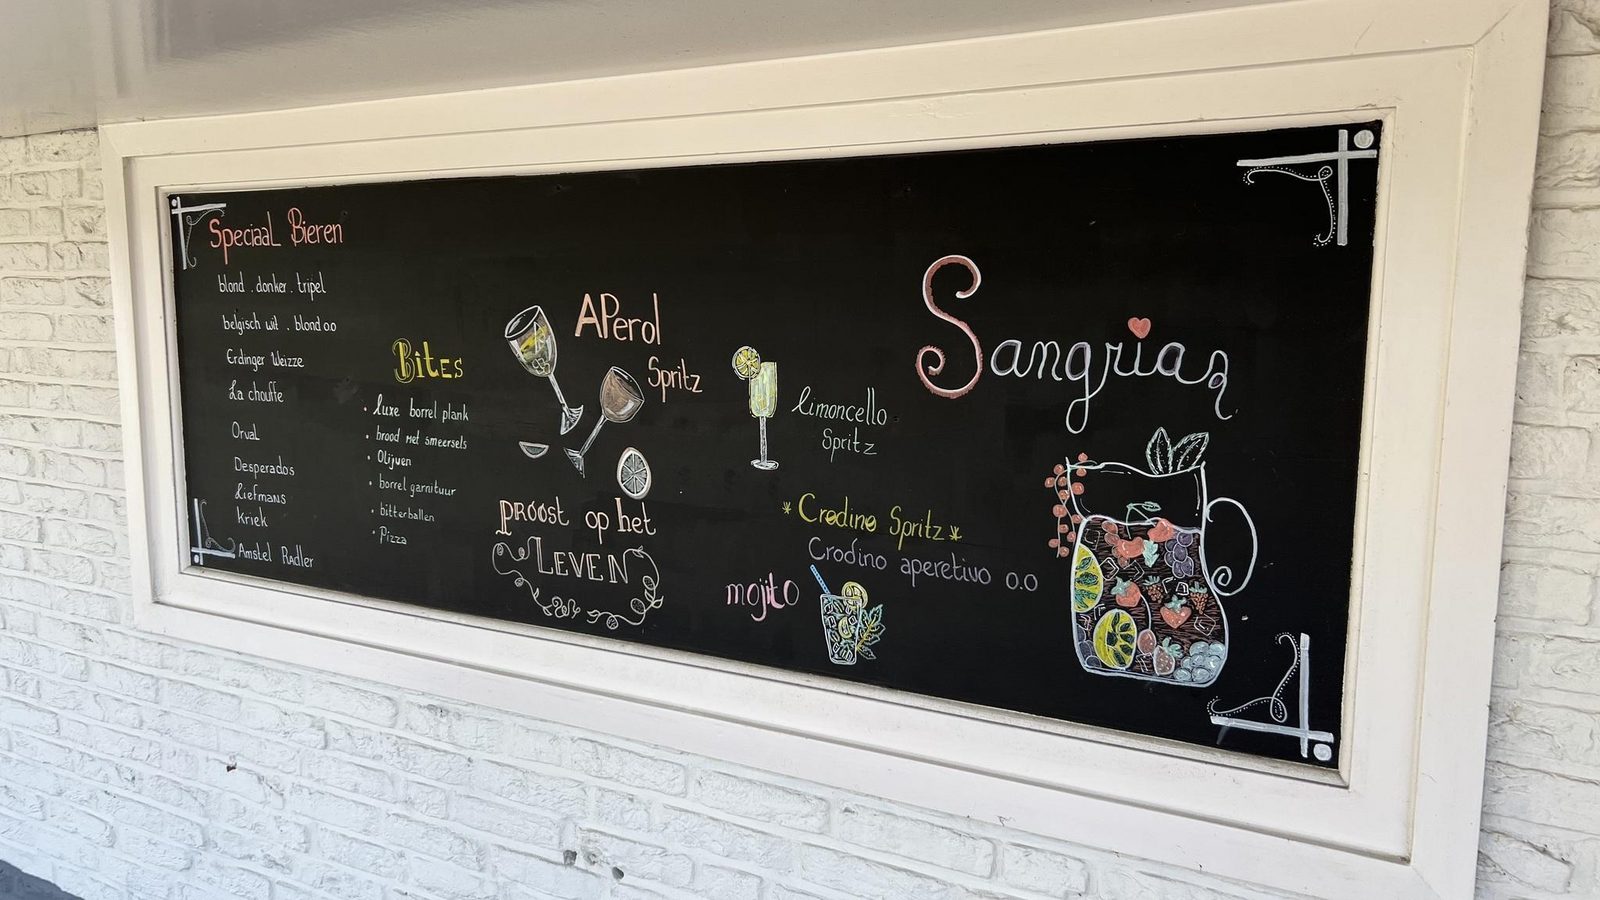 Speciaal Bieren
blond . donker . tripel
belgisch wit . blond 0.0
Erdinger Weizze
La chouffe
Orval
Desperado's
Liefmans
Kriek
Amstel Radler
Bites
• luxe borrel plank
• brood met smeersels
• Olijven
• borrel garnituur
• bitterballen
• Pizza
APerol
Spritz
proost op het
LEVEN
limoncello
Spritz
* Crodino Spritz *
Crodino aperetivo 0.0
mojito
Sangria